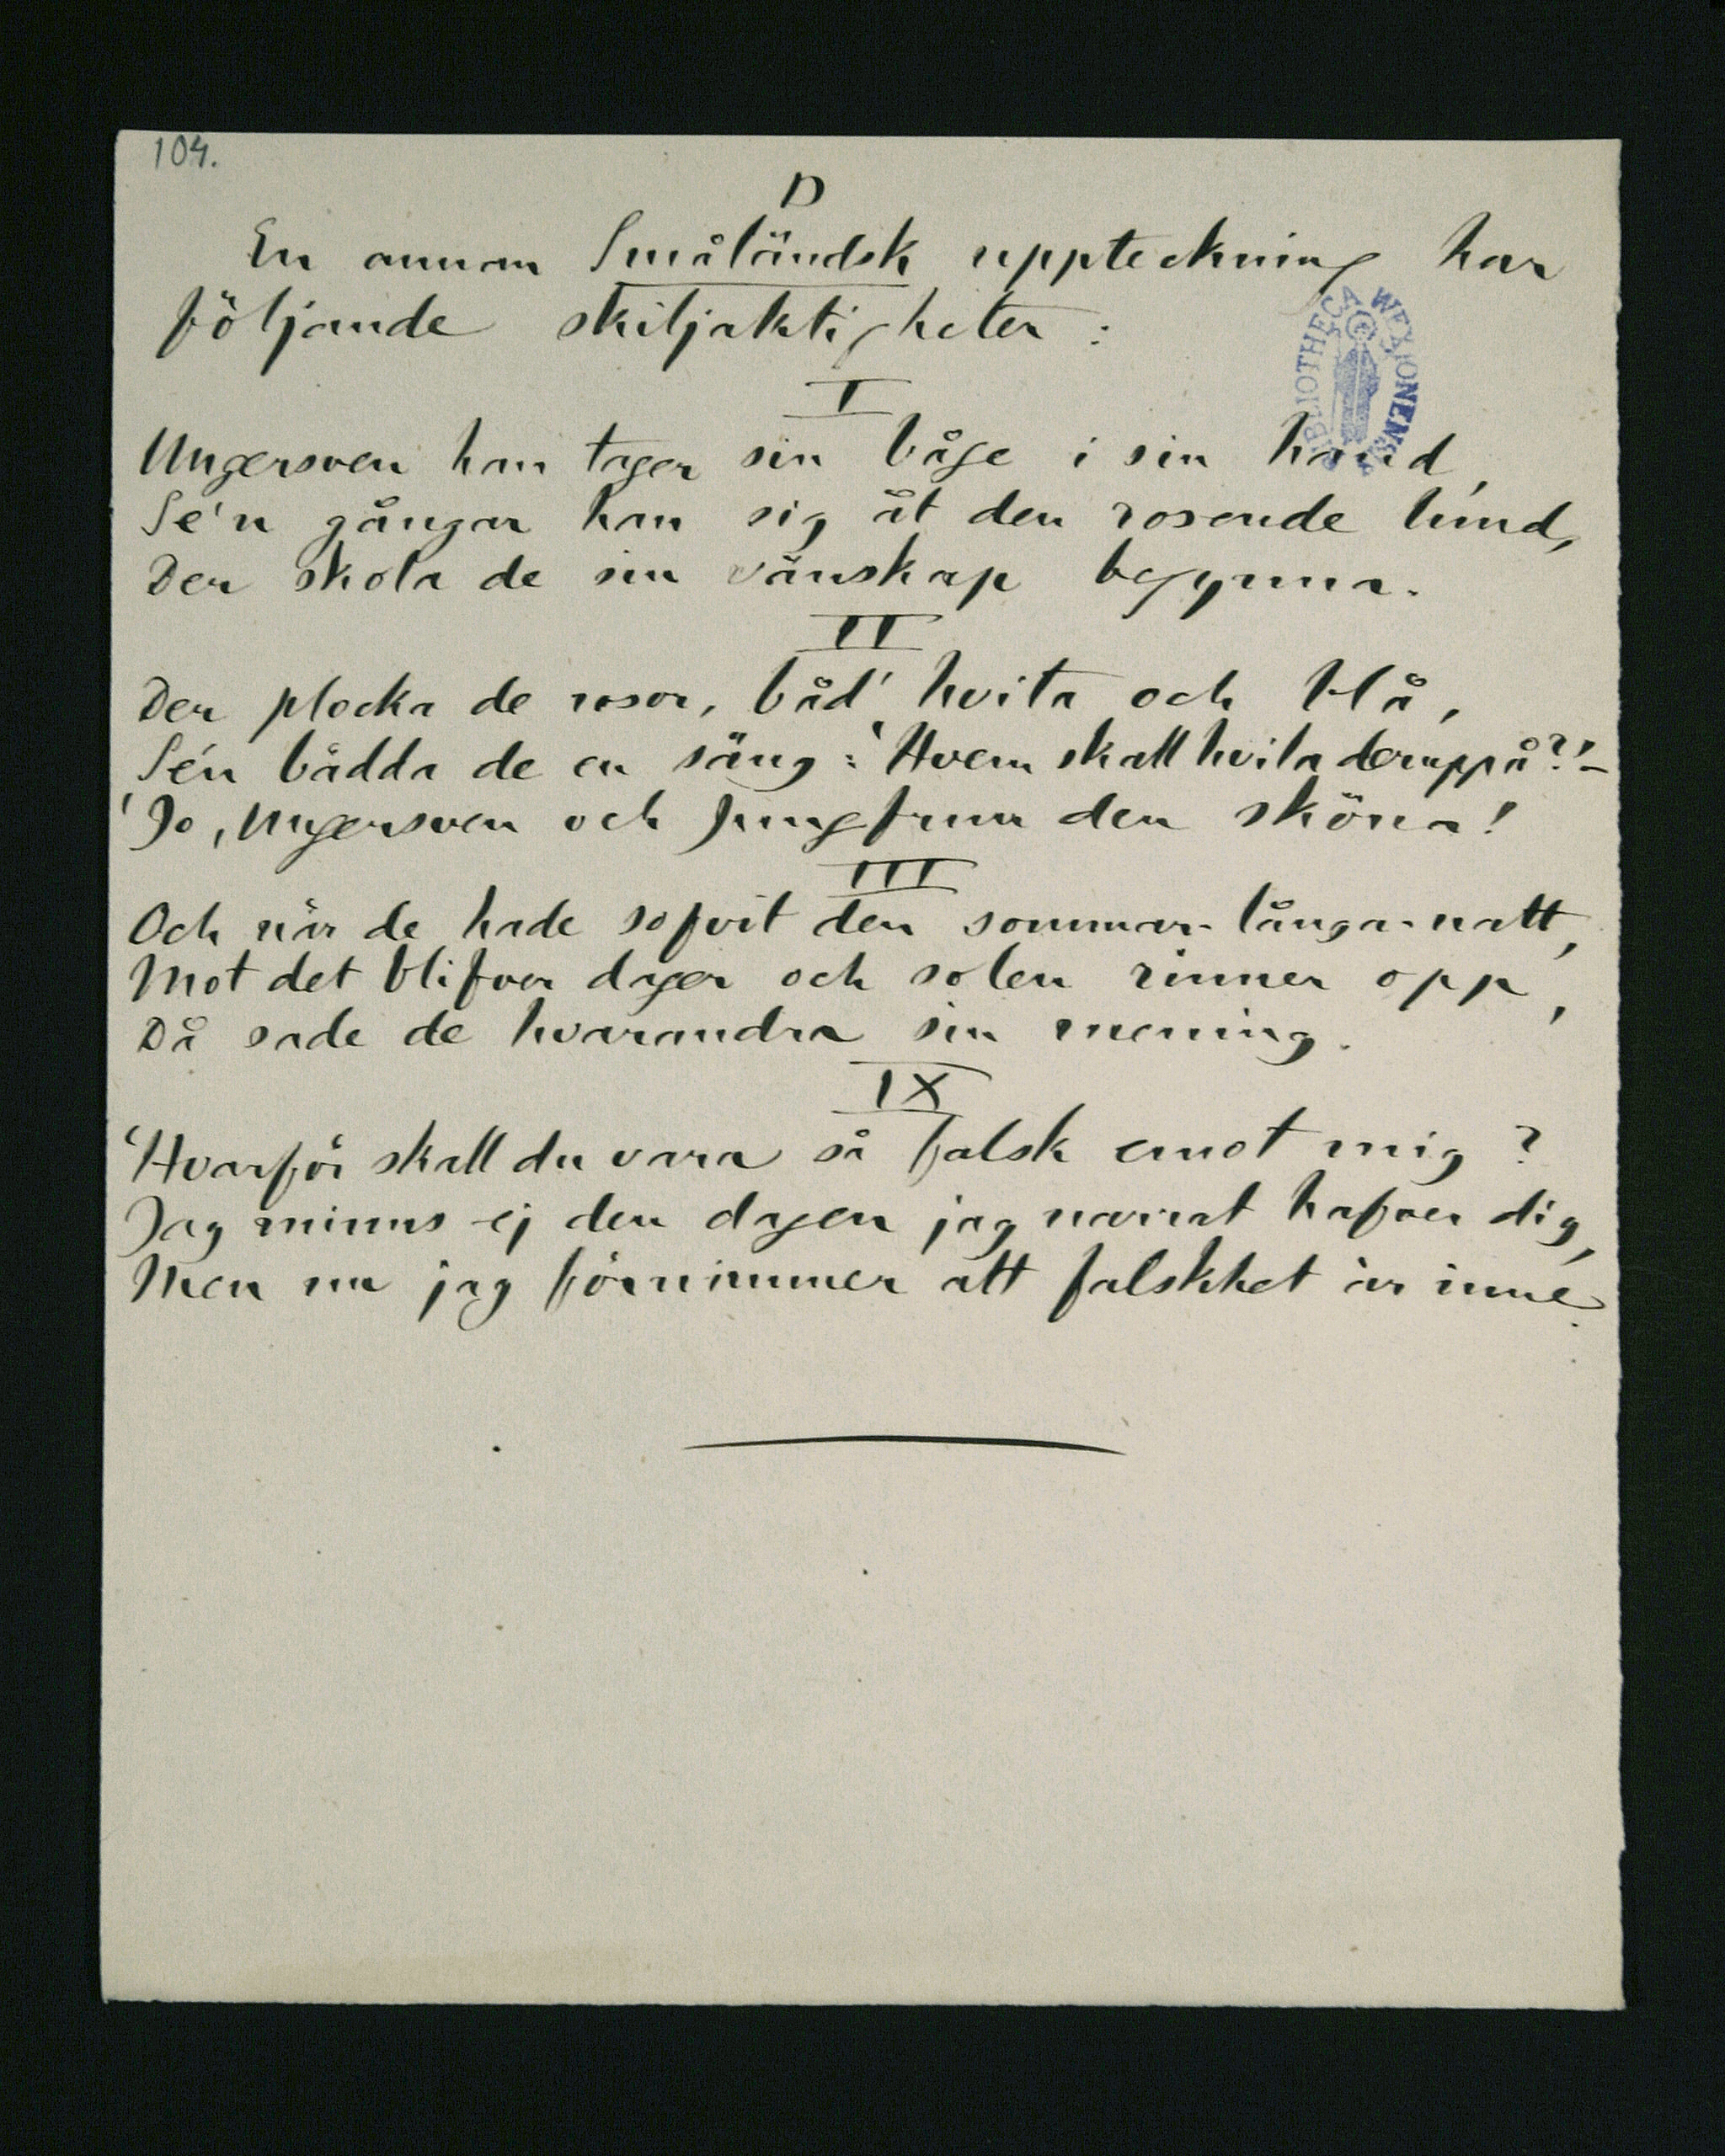 104.
D
En annan Småländsk uppteckning har
följande skiljaktigheter:
I
Ungersven han tager sin båge i sin hand,
Se'n gångar han sig åt den rosende lund,
Der skola de sin vänskap begynna.
II
Der plocka de rosor, båd' hvita och blå,
Se'n bädda de en säng: 'Hvem skall hvila deruppå?'–
'Jo, Ungersven och Jungfrun den sköna!
III
Och när de hade sofvit den sommar-långa-natt,
Mot det blifver dager och solen rinner opp,
Då sade de hvarandra sin mening.
IX
'Hvarför skall du vara så falsk emot mig?
Jag minns ej den dagen jag narrat hafver dig,
Men nu jag förnimmer att falskhet är inne.
BIBLIOTHECA WEXIONENSIS